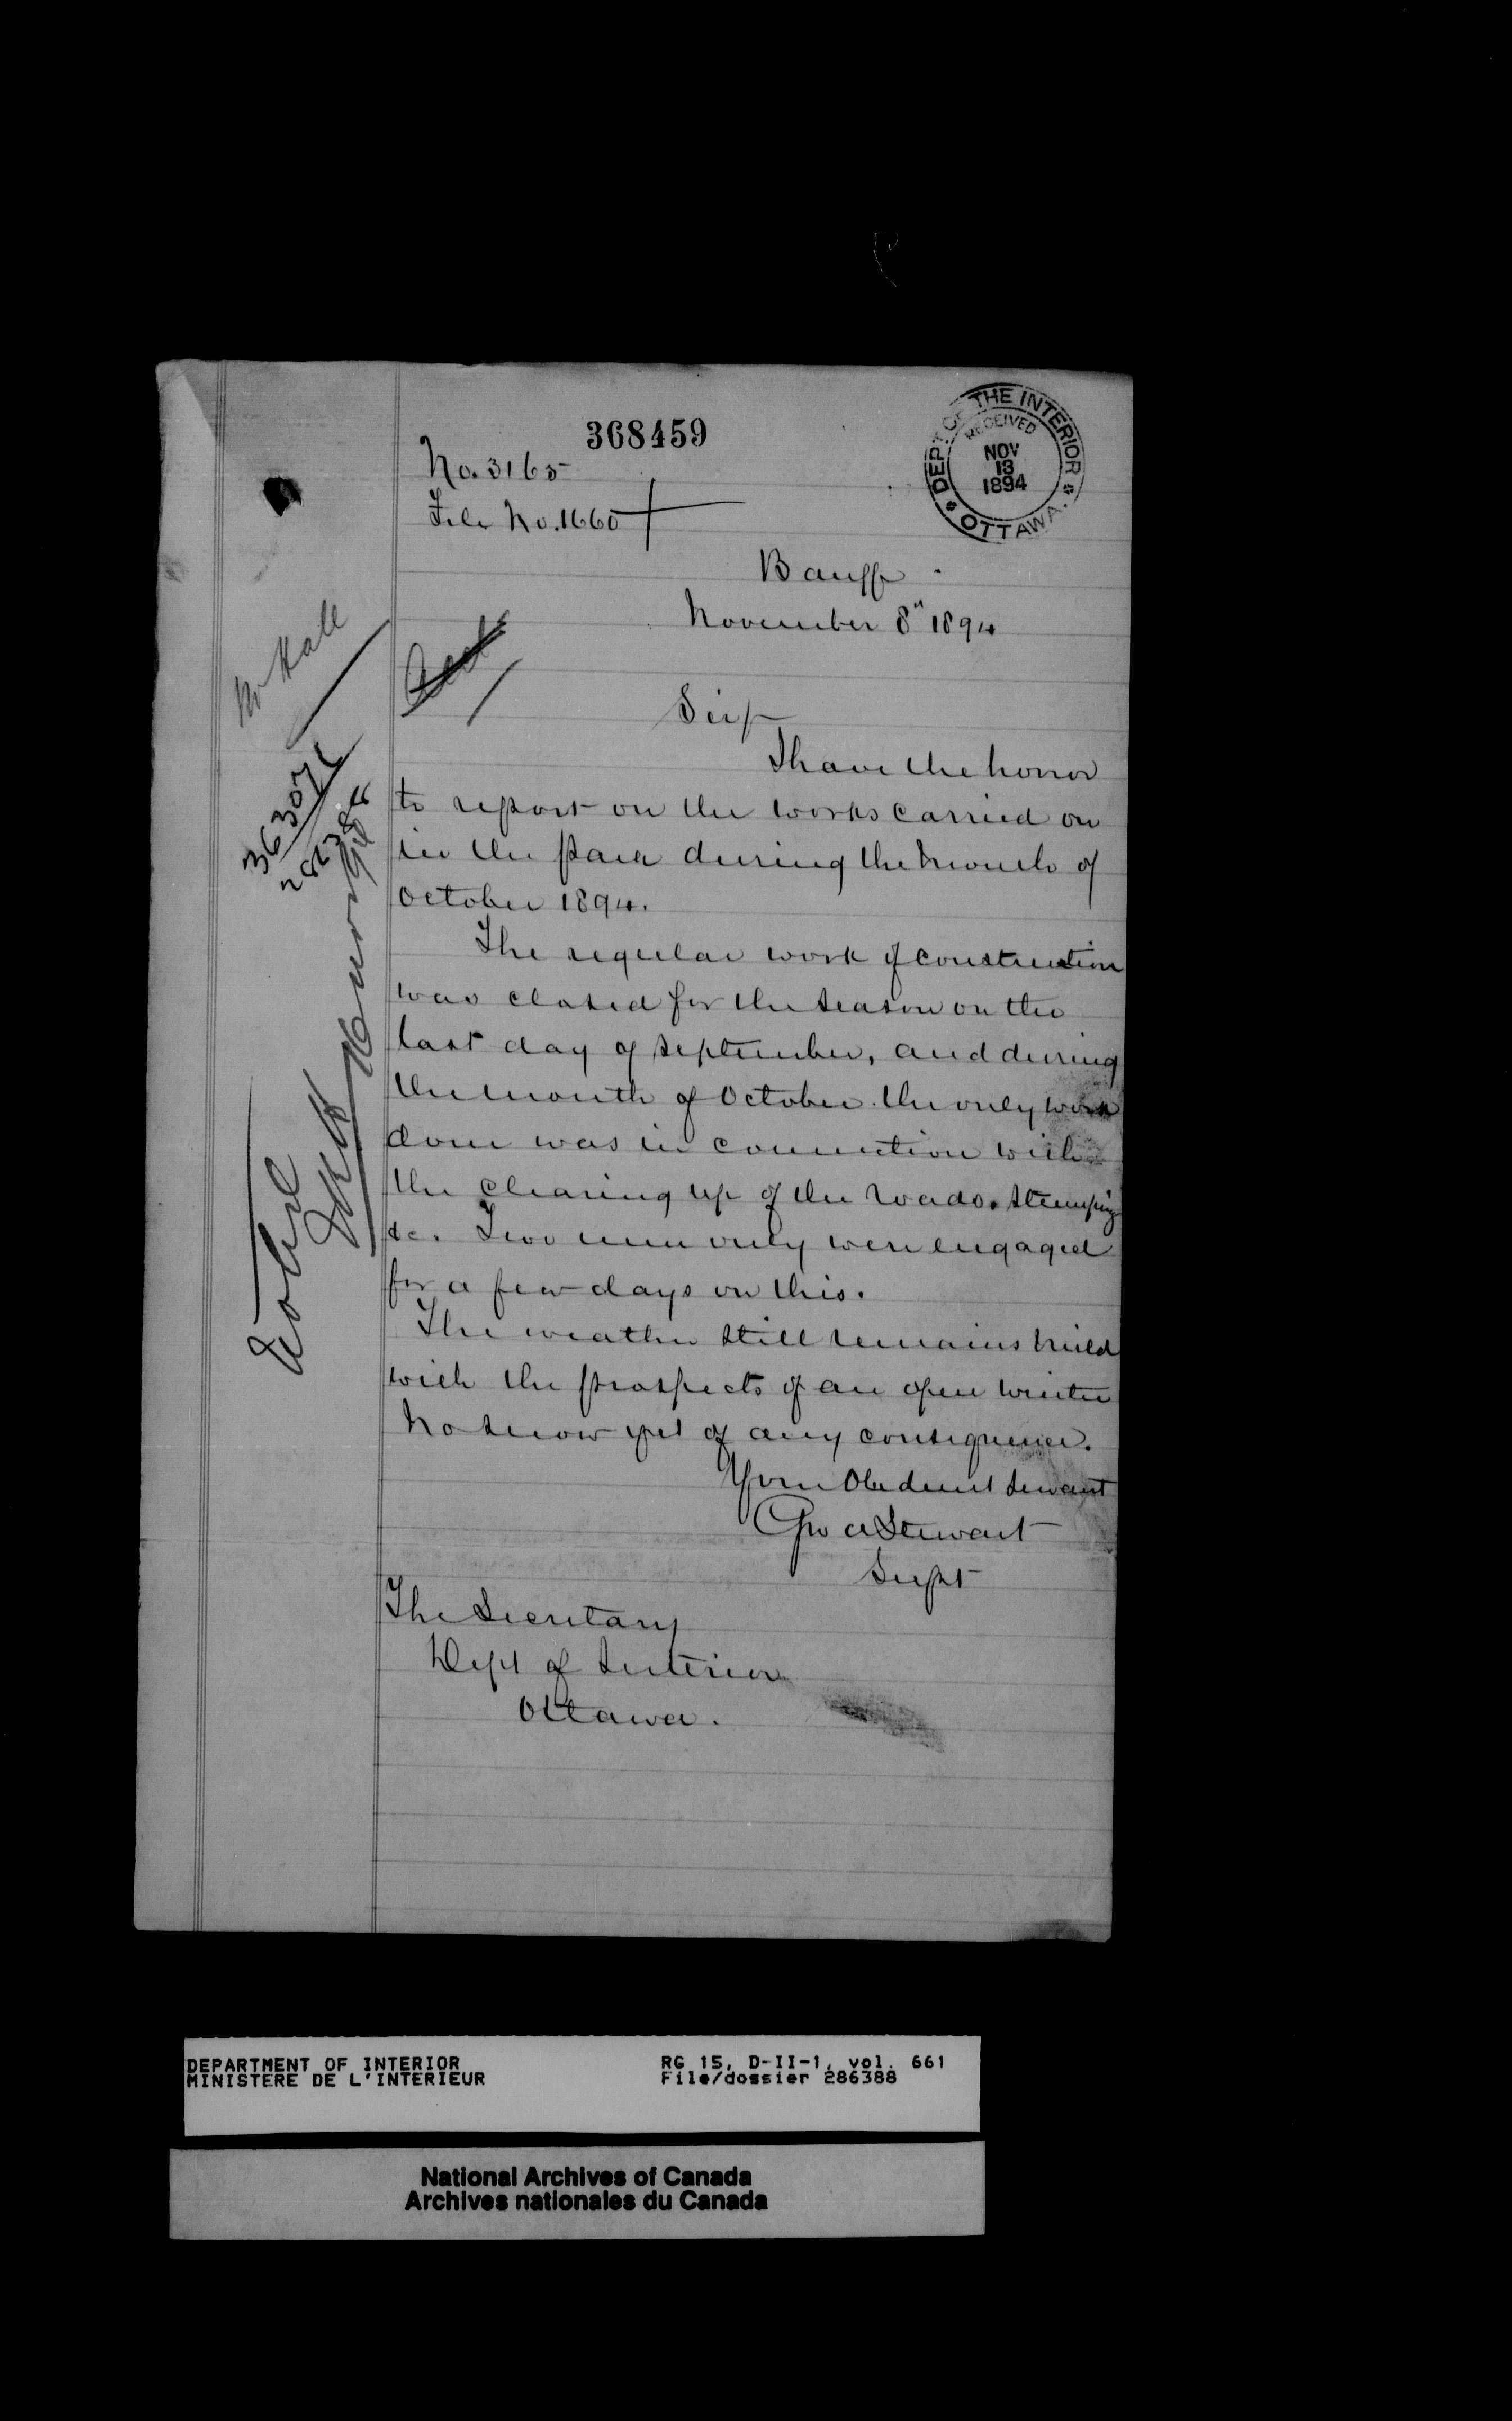 368459
DEPT. OF THE INTERIOR
RECEIVED
NOV
13
1894
OTTAWA.
No. 3165
File No. 1660
Banff
November 8" 1894
Mr Hall
Sir,
I have the honor
to report on the works carried on
in the Park during the month of
October 1894.
The regular work of construction
was closed for the season on the
last day of September, and during
the month of October the only work
done was in connection with
the clearing up of the roads, stumping
&c. Two men only were engaged
for a few days on this.
The weather still remains mild
with the prospects of an open winter
no snow yet of any consequence.
Your Obedient Servant
Geo A Stewart
Supt
The Secretary
Dept of Interior
Ottawa.
363071
286388
16 Nov 94
DEPARTMENT OF INTERIOR
MINISTERE DE L'INTERIEUR
RG 15, D-II-1, vol. 661
File/dossier 286388
National Archives of Canada
Archives nationales du Canada